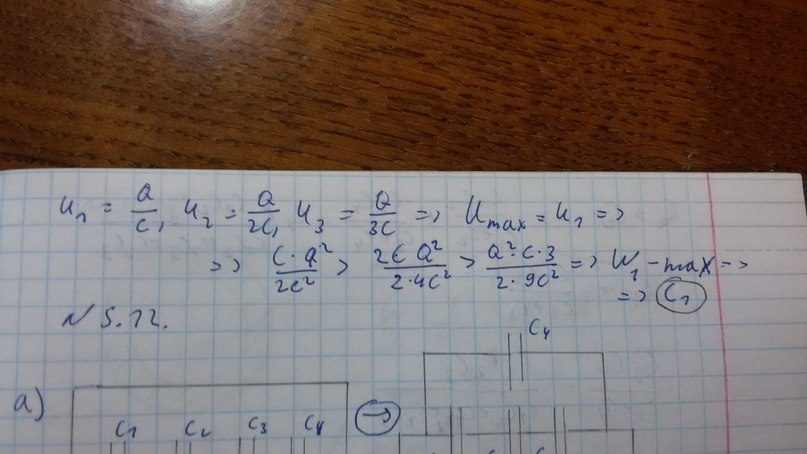 U₁ = Q/C, U₂ = Q/2C, U₃ = Q/3C => Umax = U₁ =>
=> C·q²/2C² > 2C Q²/2·4C² > Q²·C·3/2·9C² => W₁ - max =>
=> C₁
N 5.12.
C₄
а) →
C₁ C₂ C₃ C₄